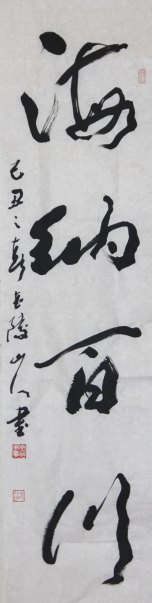 海纳百川
己丑之春 金陵山人书